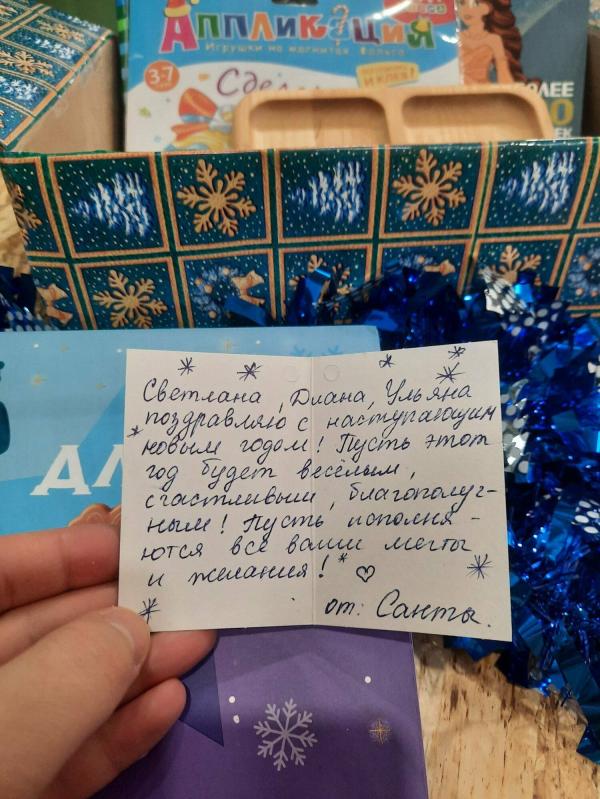 Аппликация
Игрушки на магнитах Фольга
3-7
Сдел
И КЛЕЯ!
ОЛЕЕ
0
ЕК
ДЛ
Светлана, Диана, Ульяна
поздравляю с наступающим
новым годом! Пусть этот
год будет весёлым,
счастливым, благополуч-
ным! Пусть исполня-
ются все ваши мечты
и желания!
от: Санты.